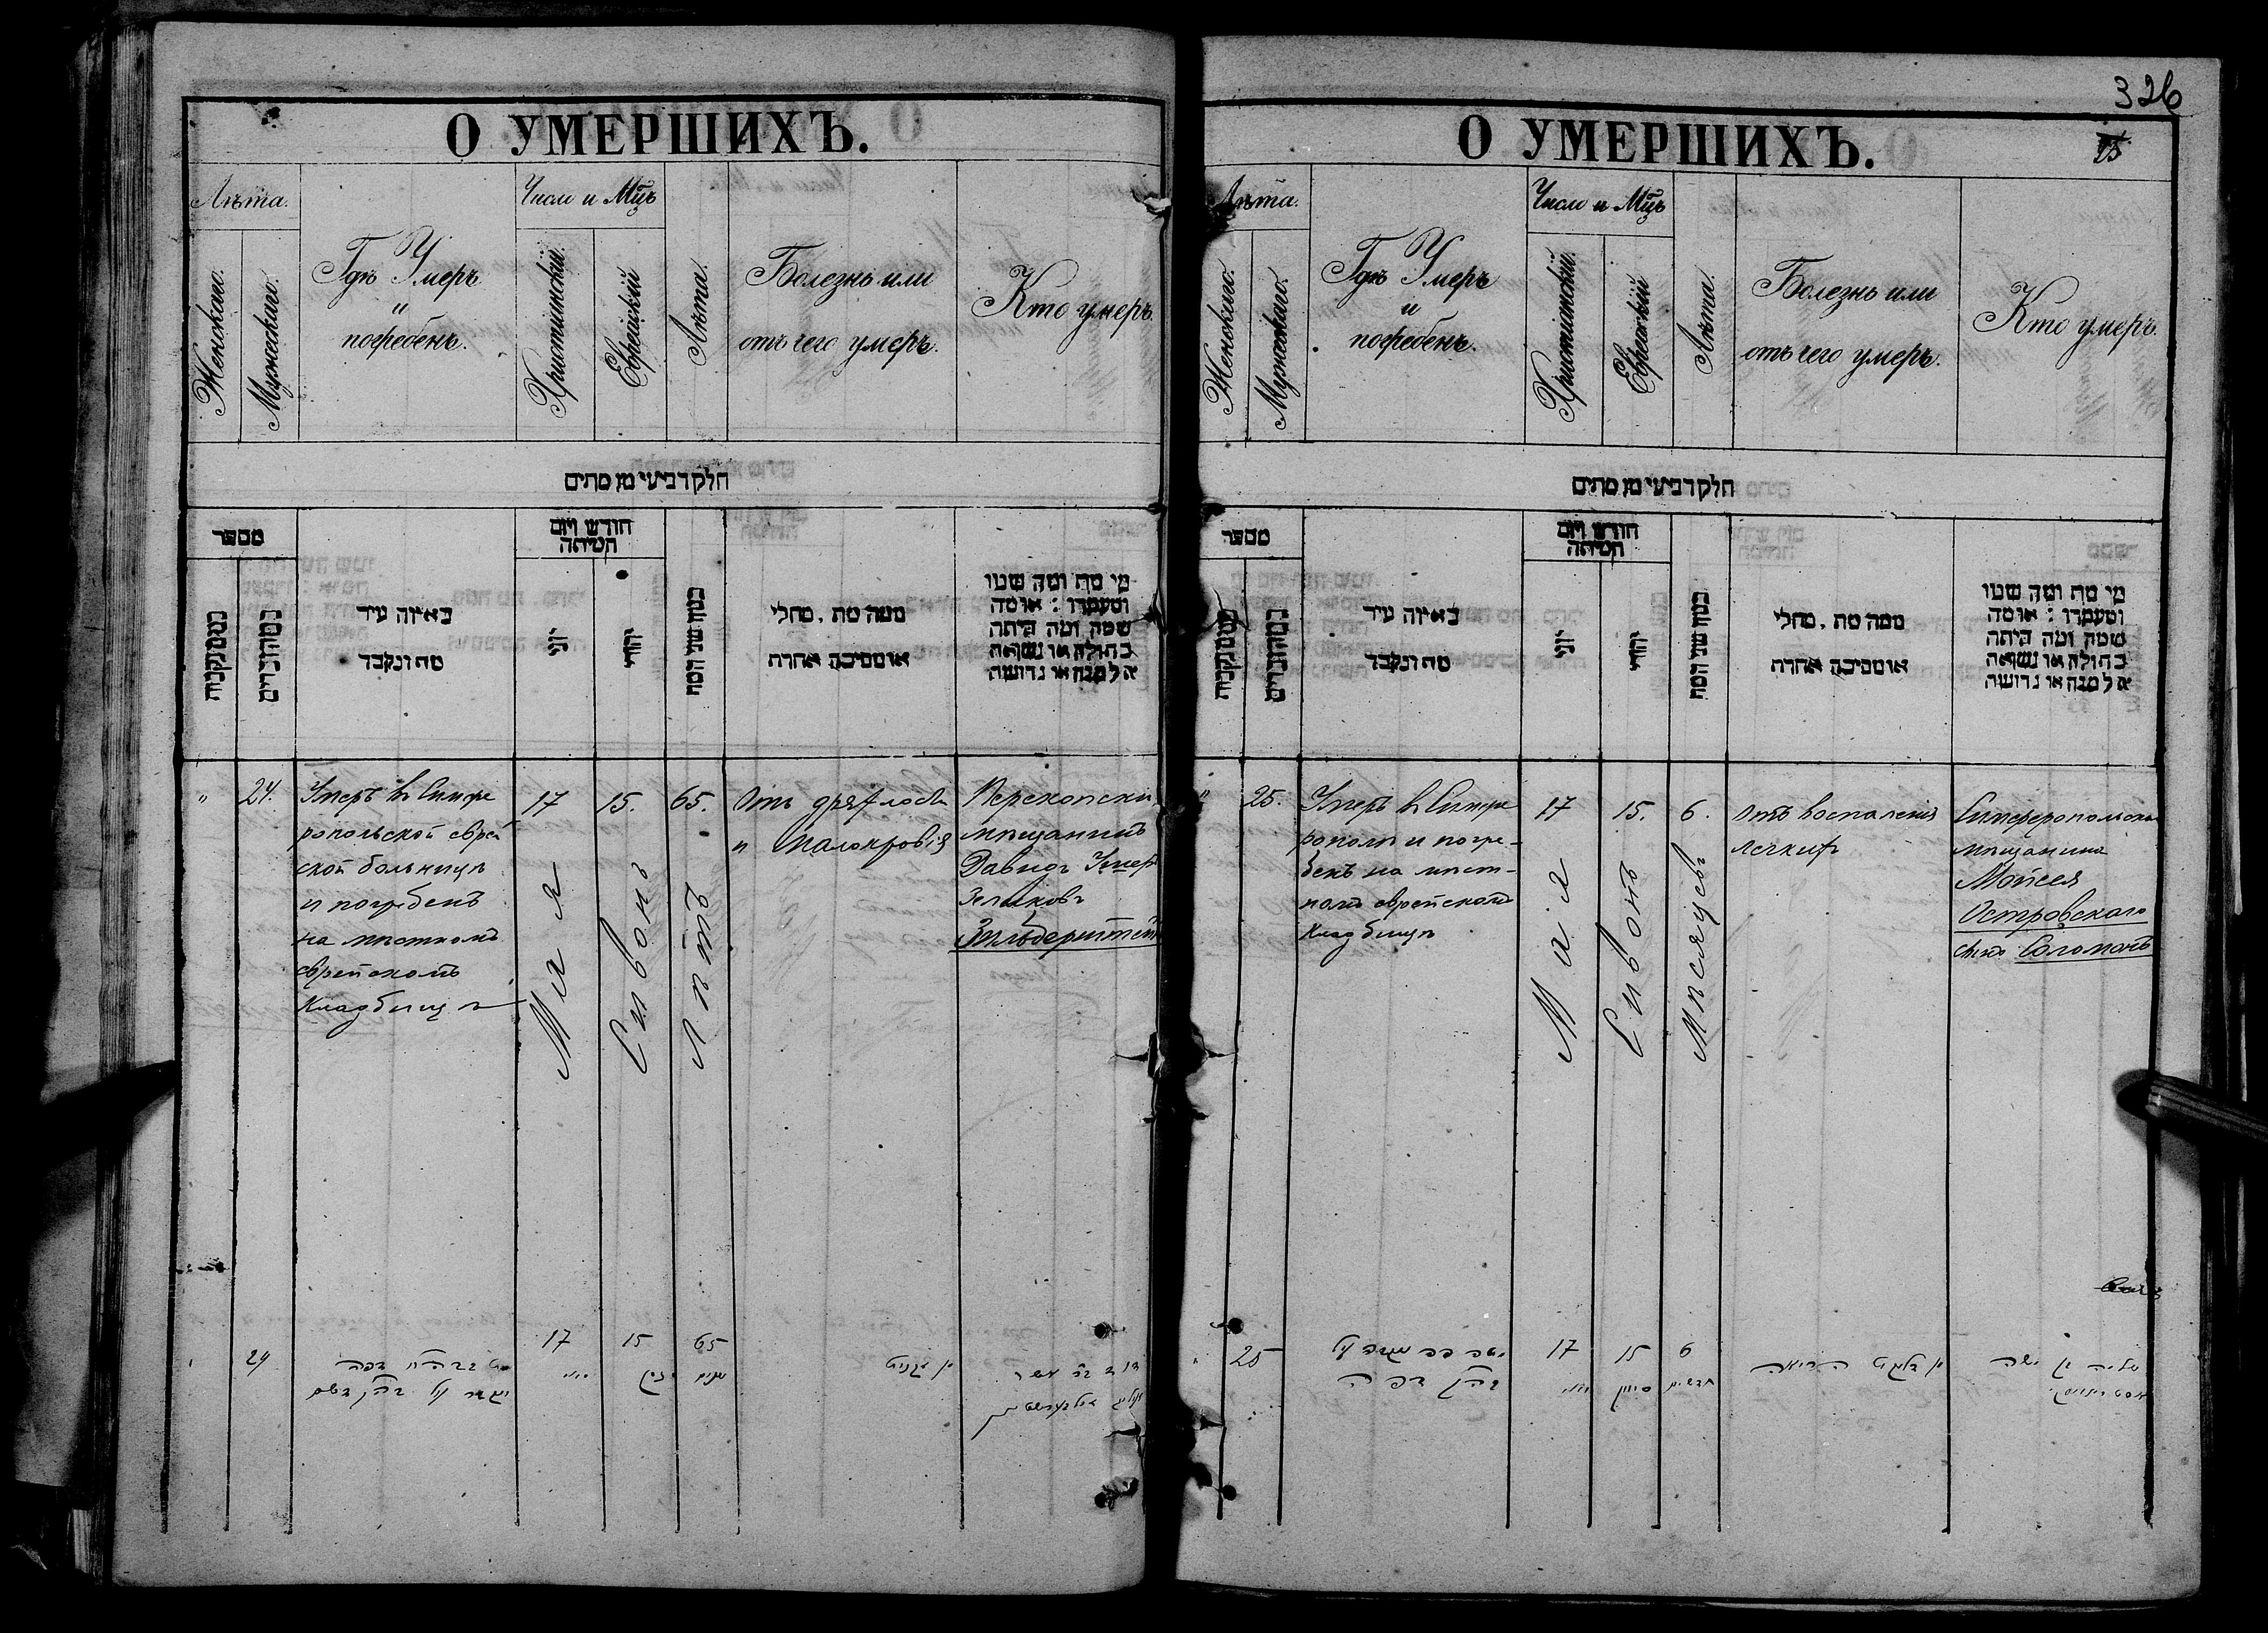 О УМЕРШИХЪ.
Лѣта.
Женскаго.
Мужескаго.
Гдѣ Умеръ
и
погребенъ.
Число и Мцъ
Христіянскій.
Еврейскій
Лѣта.
Болезнь или
отъ чего умеръ.
Кто умеръ.
חלק רביעי מן מתים
מספר
במסנקביה
במסהזכרים
באיזה עיר
מת ונקבר
חודש ויום
המיתה
יוני
יהודי
כמה שני המת
ממה מת, מחלי
או מסיבה אחרת
מי מת ומה שמו
ומעמדו: או מה
שמה ומה היתה
בתולה או נשואה
אלמנה או גרושה
" 24.
Умеръ въ Симфе
ропольской еврей
ской больницѣ
и погребенъ
на мѣстномъ
еврейскомъ
кладбищѣ
17
Мая
15.
Сивонъ
65.
лѣтъ
Отъ дряхлости
и малокровія
Перекопскій
мѣщанинъ
Давидъ Ушеръ
Зеликовъ
Зильберштейнъ
24
17
15
65
326
О УМЕРШИХЪ.
Лѣта.
Женскаго.
Мужескаго.
Гдѣ Умеръ
и
погребенъ.
Число и Мцъ
Христіянскій.
Еврейскій
Лѣта.
Болезнь или
отъ чего умеръ.
Кто умеръ.
חלק רביעי מן מתים
מספר
במסנקביה
במסהזכרים
באיזה עיר
מת ונקבר
חודש ויום
המיתה
יוני
יהודי
כמה שני המת
ממה מת, מחלי
או מסיבה אחרת
מי מת ומה שמו
ומעמדו: או מה
שמה ומה היתה
בתולה או נשואה
אלמנה או גרושה
" 25.
Умеръ въ Симфе
рополѣ и погре-
бенъ на мѣст-
номъ еврейскомъ
кладбищѣ
17
Мая
15.
Сивонъ
6.
Мѣсяцевъ
Отъ воспаленія
легкихъ
Симферопольскаго
мѣщанина
Мойсея
Островскаго
сынъ Соломонъ
25
17
15 סיון
6 חדשים